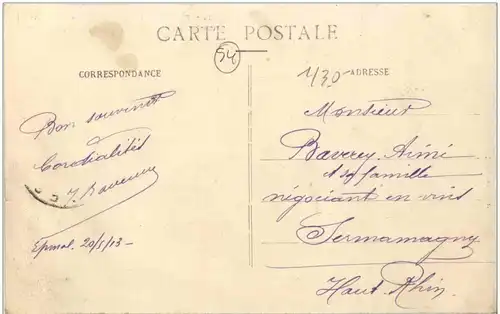 CARTE POSTALE
54
CORRESPONDANCE
ADRESSE
Bon souvenir
Cordialités
Epinal. 20/5/13 -
Monsieur
Baverey Aimé
& sa famille
négociant en vins
Sermamagny
Haut-Rhin